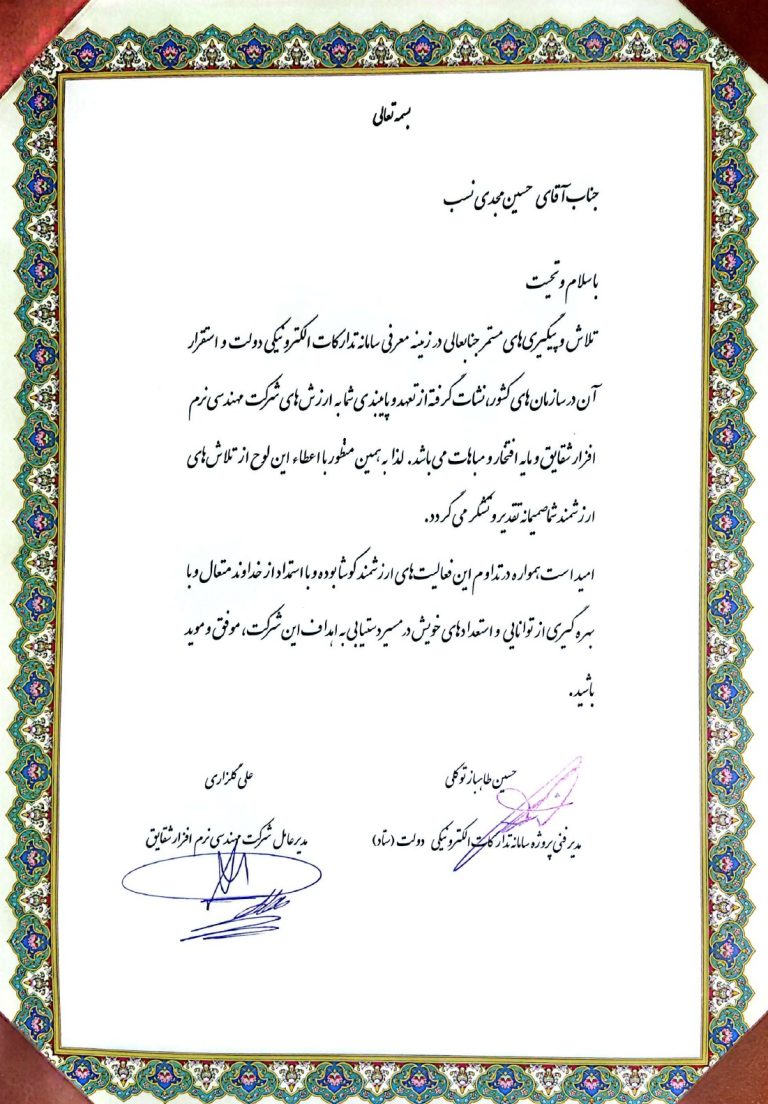 بسمه تعالی
جناب آقای حسین مجدی نسب
باسلام و تحیت
تلاش و پیگیری‌های مستمر جنابعالی در زمینه معرفی سامانه تدارکات الکترونیکی دولت و استقرار
آن در سازمان‌های کشور، نشات گرفته از تعهد و پایبندی شما به ارزش‌های شرکت مهندسی نرم
افزار شقایق و مایه افتخار و مباهات می‌باشد. لذا به همین منظور با اعطاء این لوح از تلاش‌های
ارزشمند شما صمیمانه تقدیر و تشکر می‌گردد.
امید است همواره در تداوم این فعالیت‌های ارزشمند کوشا بوده و با استمداد از خداوند متعال و با
بهره گیری از توانایی و استعدادهای خویش در مسیر دستیابی به اهداف این شرکت، موفق و موید
باشید.
حسین طاهباز توکلی
مدیر فنی پروژه سامانه تدارکات الکترونیکی دولت (ستاد)
علی گلزاری
مدیر عامل شرکت مهندسی نرم افزار شقایق